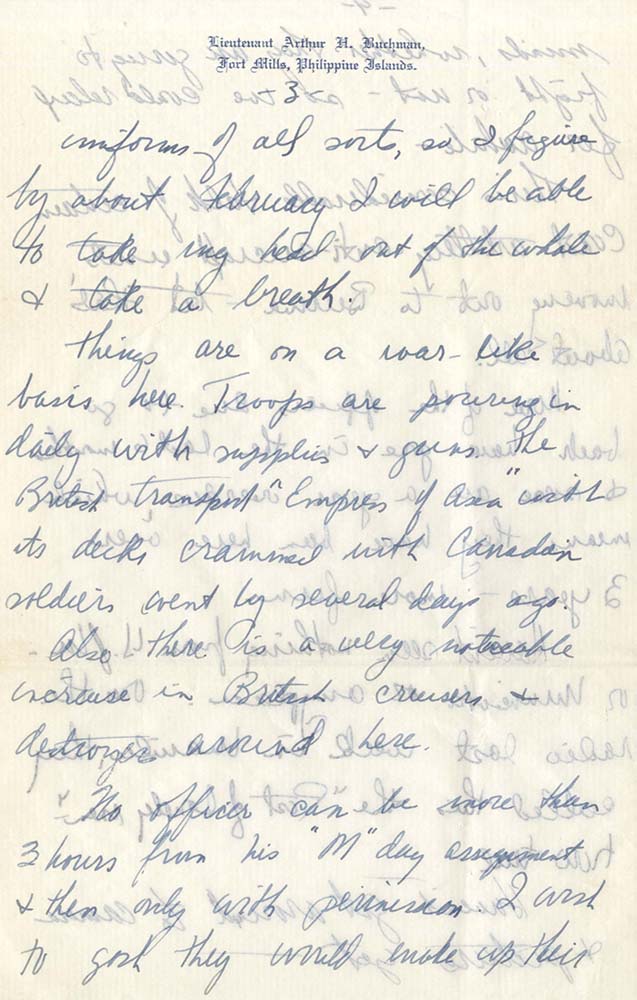 Lieutenant Arthur H. Buchman,
Fort Mills, Philippine Islands.
- 3 -
uniforms of all sorts, so I figure
by about February I will be able
to take my head out of the whole
& take a breath.
Things are on a war-like
basis here. Troops are pouring in
daily with supplies & guns. The
British transport "Empress of Asia" with
its decks crammed with Canadian
soldiers went by several days ago.
Also there is a very noticeable
increase in British cruisers &
destroyers around here.
No officer can be more than
3 hours from his "M" day assignment
& then only with permission I wish
to gosh they would make up their